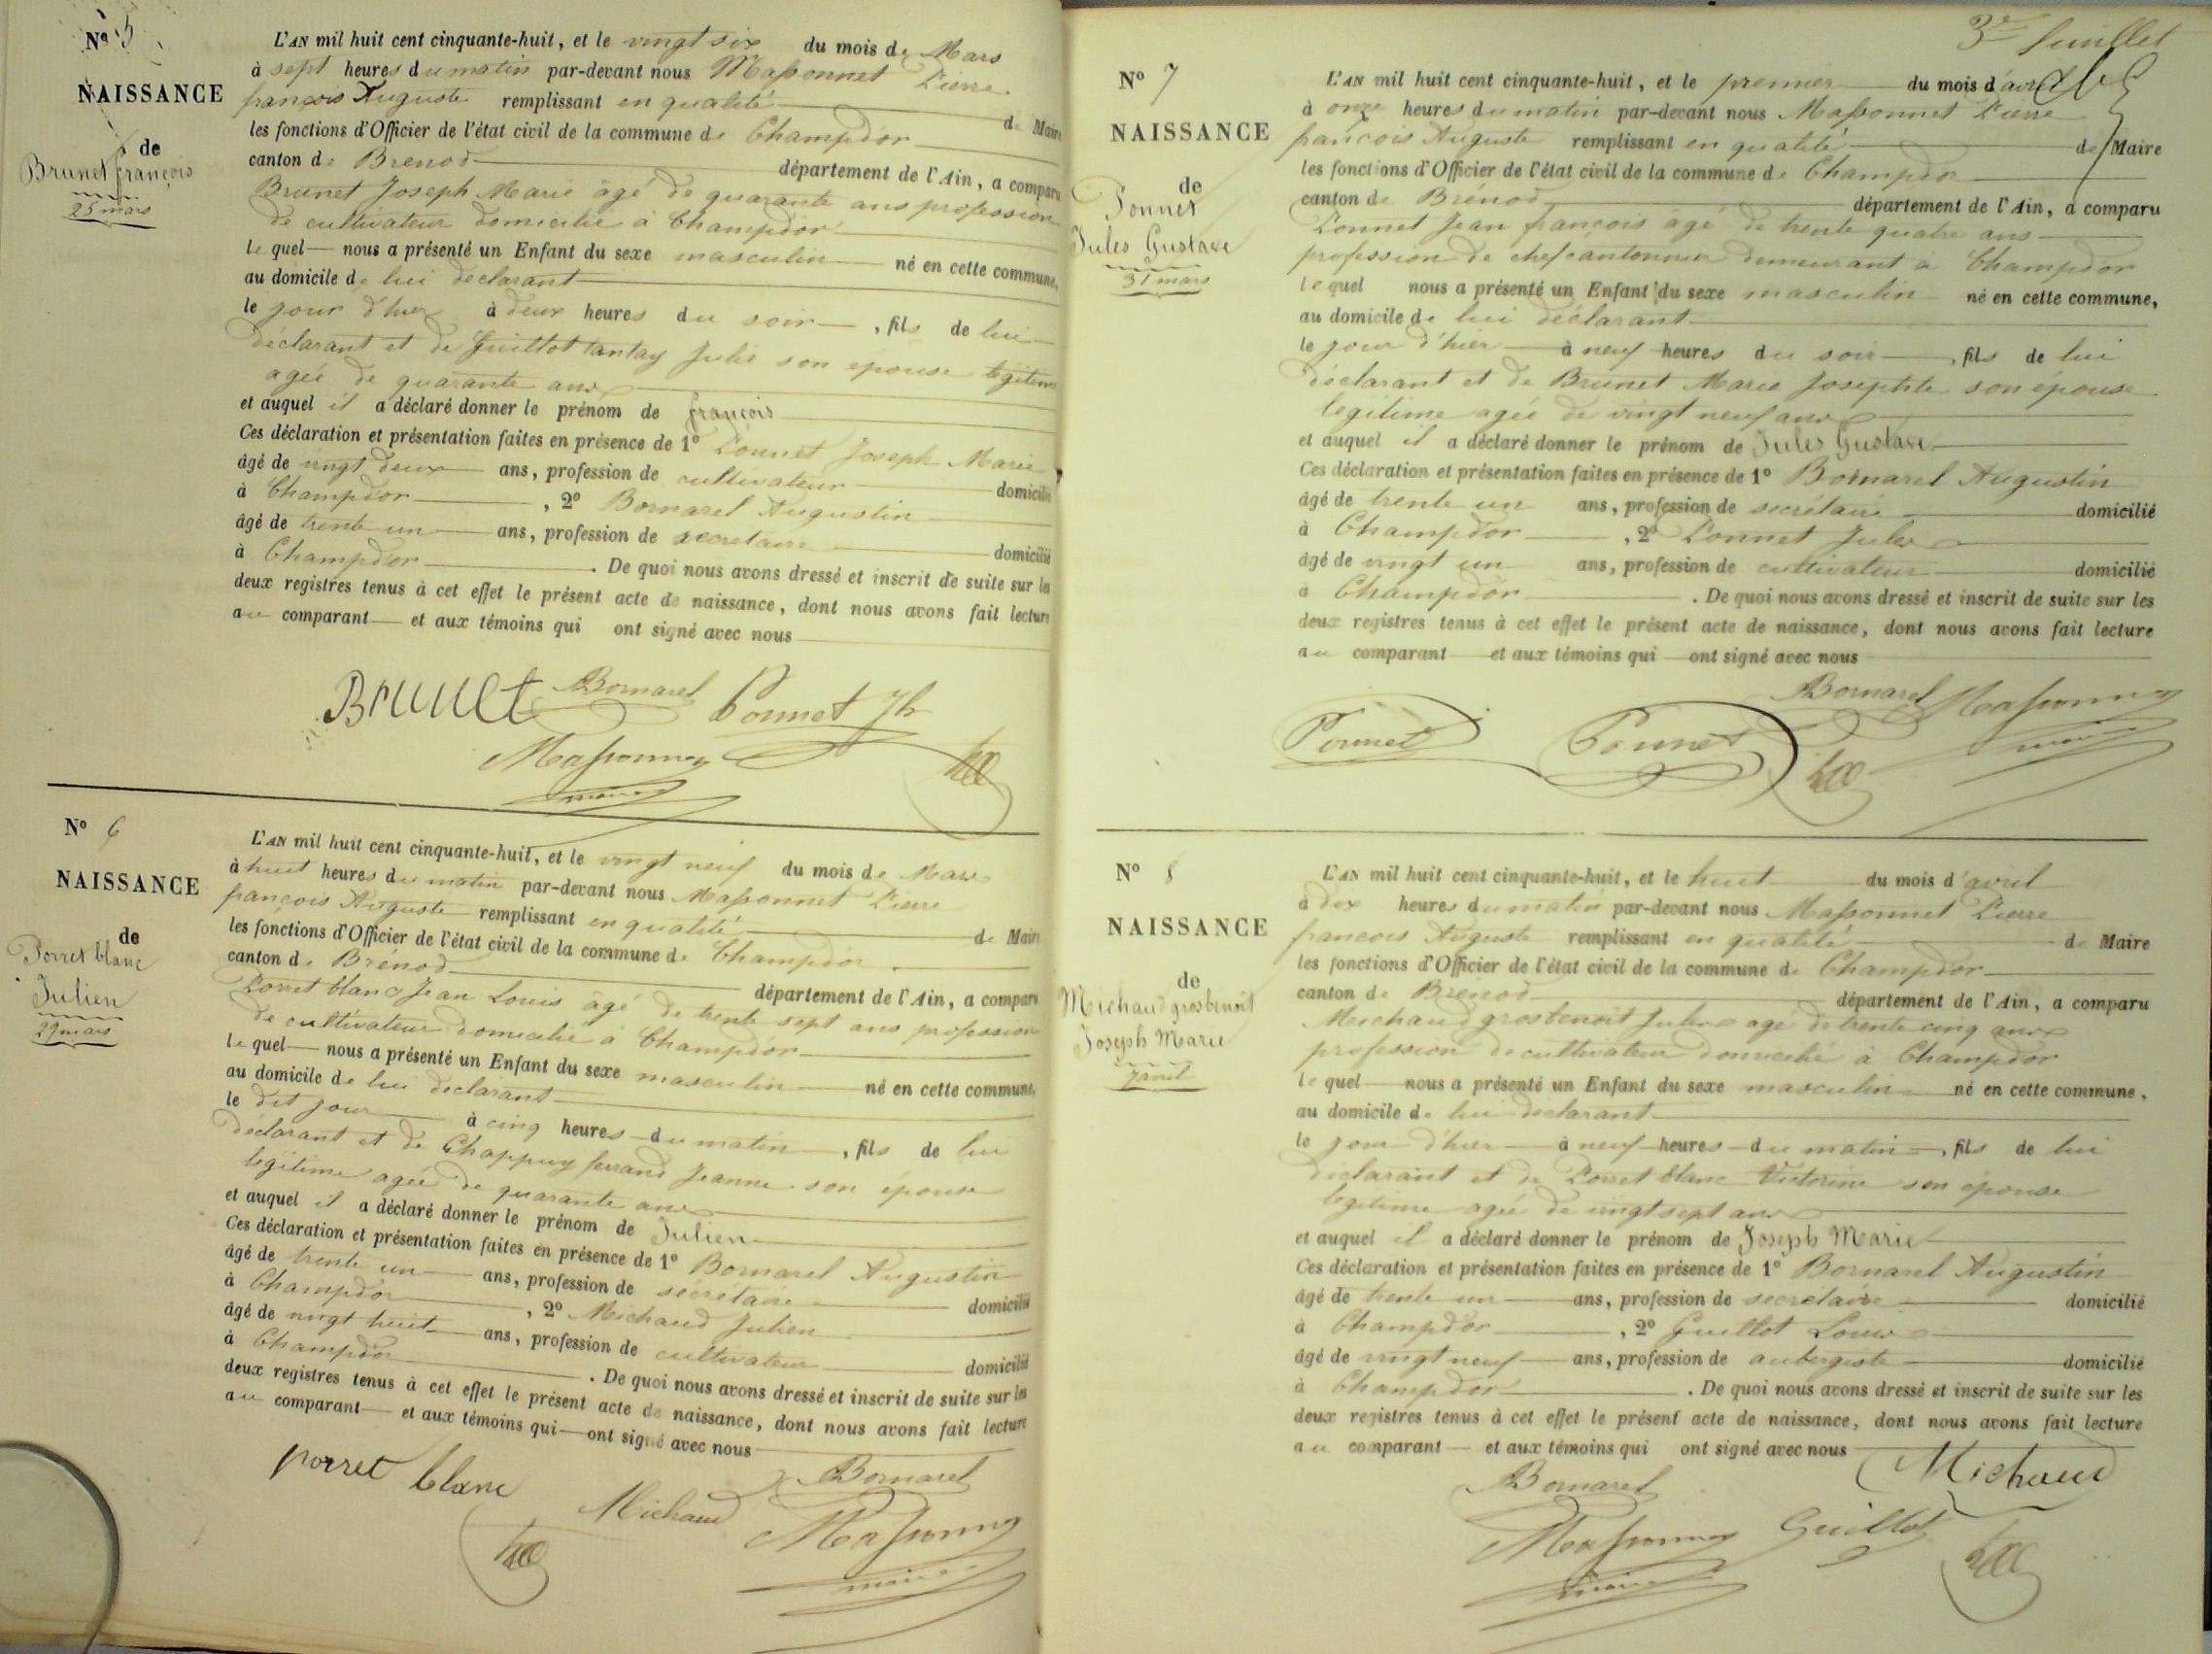 Nº 5
NAISSANCE
de
Brunet françois
25 mars
L'AN mil huit cent cinquante-huit, et le vingt six du mois de Mars
à sept heures du matin par-devant nous Massonnet Pierre
françois Auguste remplissant en qualité de Maire
les fonctions d'Officier de l'état civil de la commune de Champdor
canton de Brenod département de l'Ain, a comparu
Brunet Joseph Marie âgé de quarante ans profession
de cultivateur domicilié à Champdor
lequel nous a présenté un Enfant du sexe masculin né en cette commune,
au domicile de lui déclarant
le jour d'hier à deux heures du soir, fils de lui
déclarant et de Guillot tantay Julie son épouse légitime
agée de quarante ans
et auquel il a déclaré donner le prénom de françois
Ces déclaration et présentation faites en présence de 1º Ponnet Joseph Marie
âgé de vingt deux ans, profession de cultivateur domicilié
à Champdor, 2º Bornarel Augustin
âgé de trente un ans, profession de secretaire domicilié
à Champdor. De quoi nous avons dressé et inscrit de suite sur les
deux registres tenus à cet effet le présent acte de naissance, dont nous avons fait lecture
au comparant et aux témoins qui ont signé avec nous
Brunet Bornarel Ponnet Jh
Massonnet
maire
Nº 6
NAISSANCE
de
Porret blanc
Julien
29 mars
L'AN mil huit cent cinquante-huit, et le vingt neuf du mois de Mars
à huit heures du matin par-devant nous Massonnet Pierre
françois Auguste remplissant en qualité de Maire
les fonctions d'Officier de l'état civil de la commune de Champdor
canton de Brénod département de l'Ain, a comparu
Porret blanc Jean Louis âgé de trente sept ans profession
de cultivateur domicilié à Champdor
lequel nous a présenté un Enfant du sexe masculin né en cette commune,
au domicile de lui déclarant
le dit jour à cinq heures du matin, fils de lui
déclarant et de Chappuy ferrand Jeanne son épouse
légitime agée de quarante ans
et auquel il a déclaré donner le prénom de Julien
Ces déclaration et présentation faites en présence de 1º Bornarel Augustin
âgé de trente un ans, profession de secrétaire domicilié
à Champdor, 2º Michaud Julien
âgé de vingt huit ans, profession de cultivateur domicilié
à Champdor. De quoi nous avons dressé et inscrit de suite sur les
deux registres tenus à cet effet le présent acte de naissance, dont nous avons fait lecture
au comparant et aux témoins qui ont signé avec nous
porret blanc Michaud Bornarel
Massonnet
maire
3e feuillet
Nº 7
NAISSANCE
de
Ponnet
Jules Gustave
31 mars
L'AN mil huit cent cinquante-huit, et le premier du mois d'avril
à onze heures du matin par-devant nous Massonnet Pierre
françois Auguste remplissant en qualité de Maire
les fonctions d'Officier de l'état civil de la commune de Champdor
canton de Brénod département de l'Ain, a comparu
Ponnet Jean françois âgé de trente quatre ans
profession de chef cantonnier demeurant à Champdor
lequel nous a présenté un Enfant du sexe masculin né en cette commune,
au domicile de lui déclarant
le jour d'hier à neuf heures du soir, fils de lui
déclarant et de Brunet Marie Josephte son épouse
légitime agée de vingt neuf ans
et auquel il a déclaré donner le prénom de Jules Gustave
Ces déclaration et présentation faites en présence de 1º Bornarel Augustin
âgé de trente un ans, profession de secrétaire domicilié
à Champdor, 2º Ponnet Jules
âgé de vingt un ans, profession de cultivateur domicilié
à Champdor. De quoi nous avons dressé et inscrit de suite sur les
deux registres tenus à cet effet le présent acte de naissance, dont nous avons fait lecture
au comparant et aux témoins qui ont signé avec nous
Ponnet Ponnet Bornarel Massonnet
maire
Nº 8
NAISSANCE
de
Michaud grosbenoit
Joseph Marie
7 avril
L'AN mil huit cent cinquante-huit, et le huit du mois d'avril
à dix heures du matin par-devant nous Massonnet Pierre
françois Auguste remplissant en qualité de Maire
les fonctions d'Officier de l'état civil de la commune de Champdor
canton de Brénod département de l'Ain, a comparu
Michaud grosbenoit Jules agé de trente cinq ans
profession de cultivateur domicilié à Champdor
lequel nous a présenté un Enfant du sexe masculin né en cette commune,
au domicile de lui déclarant
le jour d'hier à neuf heures du matin, fils de lui
déclarant et de Porret blanc Victorine son épouse
légitime agée de vingt sept ans
et auquel il a déclaré donner le prénom de Joseph Marie
Ces déclaration et présentation faites en présence de 1º Bornarel Augustin
âgé de trente un ans, profession de secretaire domicilié
à Champdor, 2º Guillot Louis
âgé de vingt neuf ans, profession de aubergiste domicilié
à Champdor. De quoi nous avons dressé et inscrit de suite sur les
deux registres tenus à cet effet le présent acte de naissance, dont nous avons fait lecture
au comparant et aux témoins qui ont signé avec nous
Bornarel Michaud
Massonnet Guillot
maire